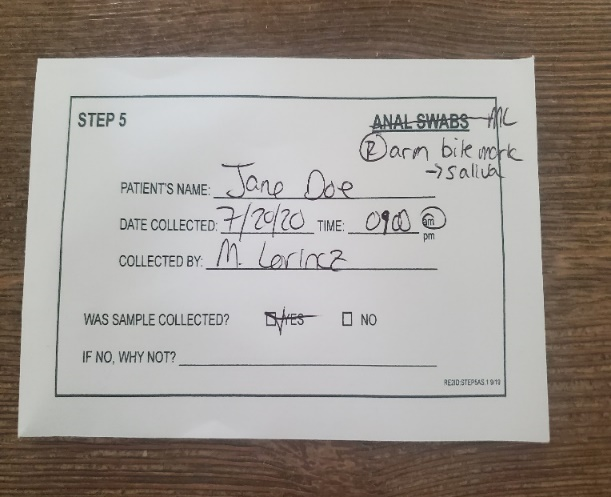 STEP 5
ANAL SWABS ML
R arm bite mark
→ saliva
PATIENT'S NAME: Jane Doe
DATE COLLECTED: 7/20/20 TIME: 0900 am
pm
COLLECTED BY: M. Lorincz
WAS SAMPLE COLLECTED? YES NO
IF NO, WHY NOT?